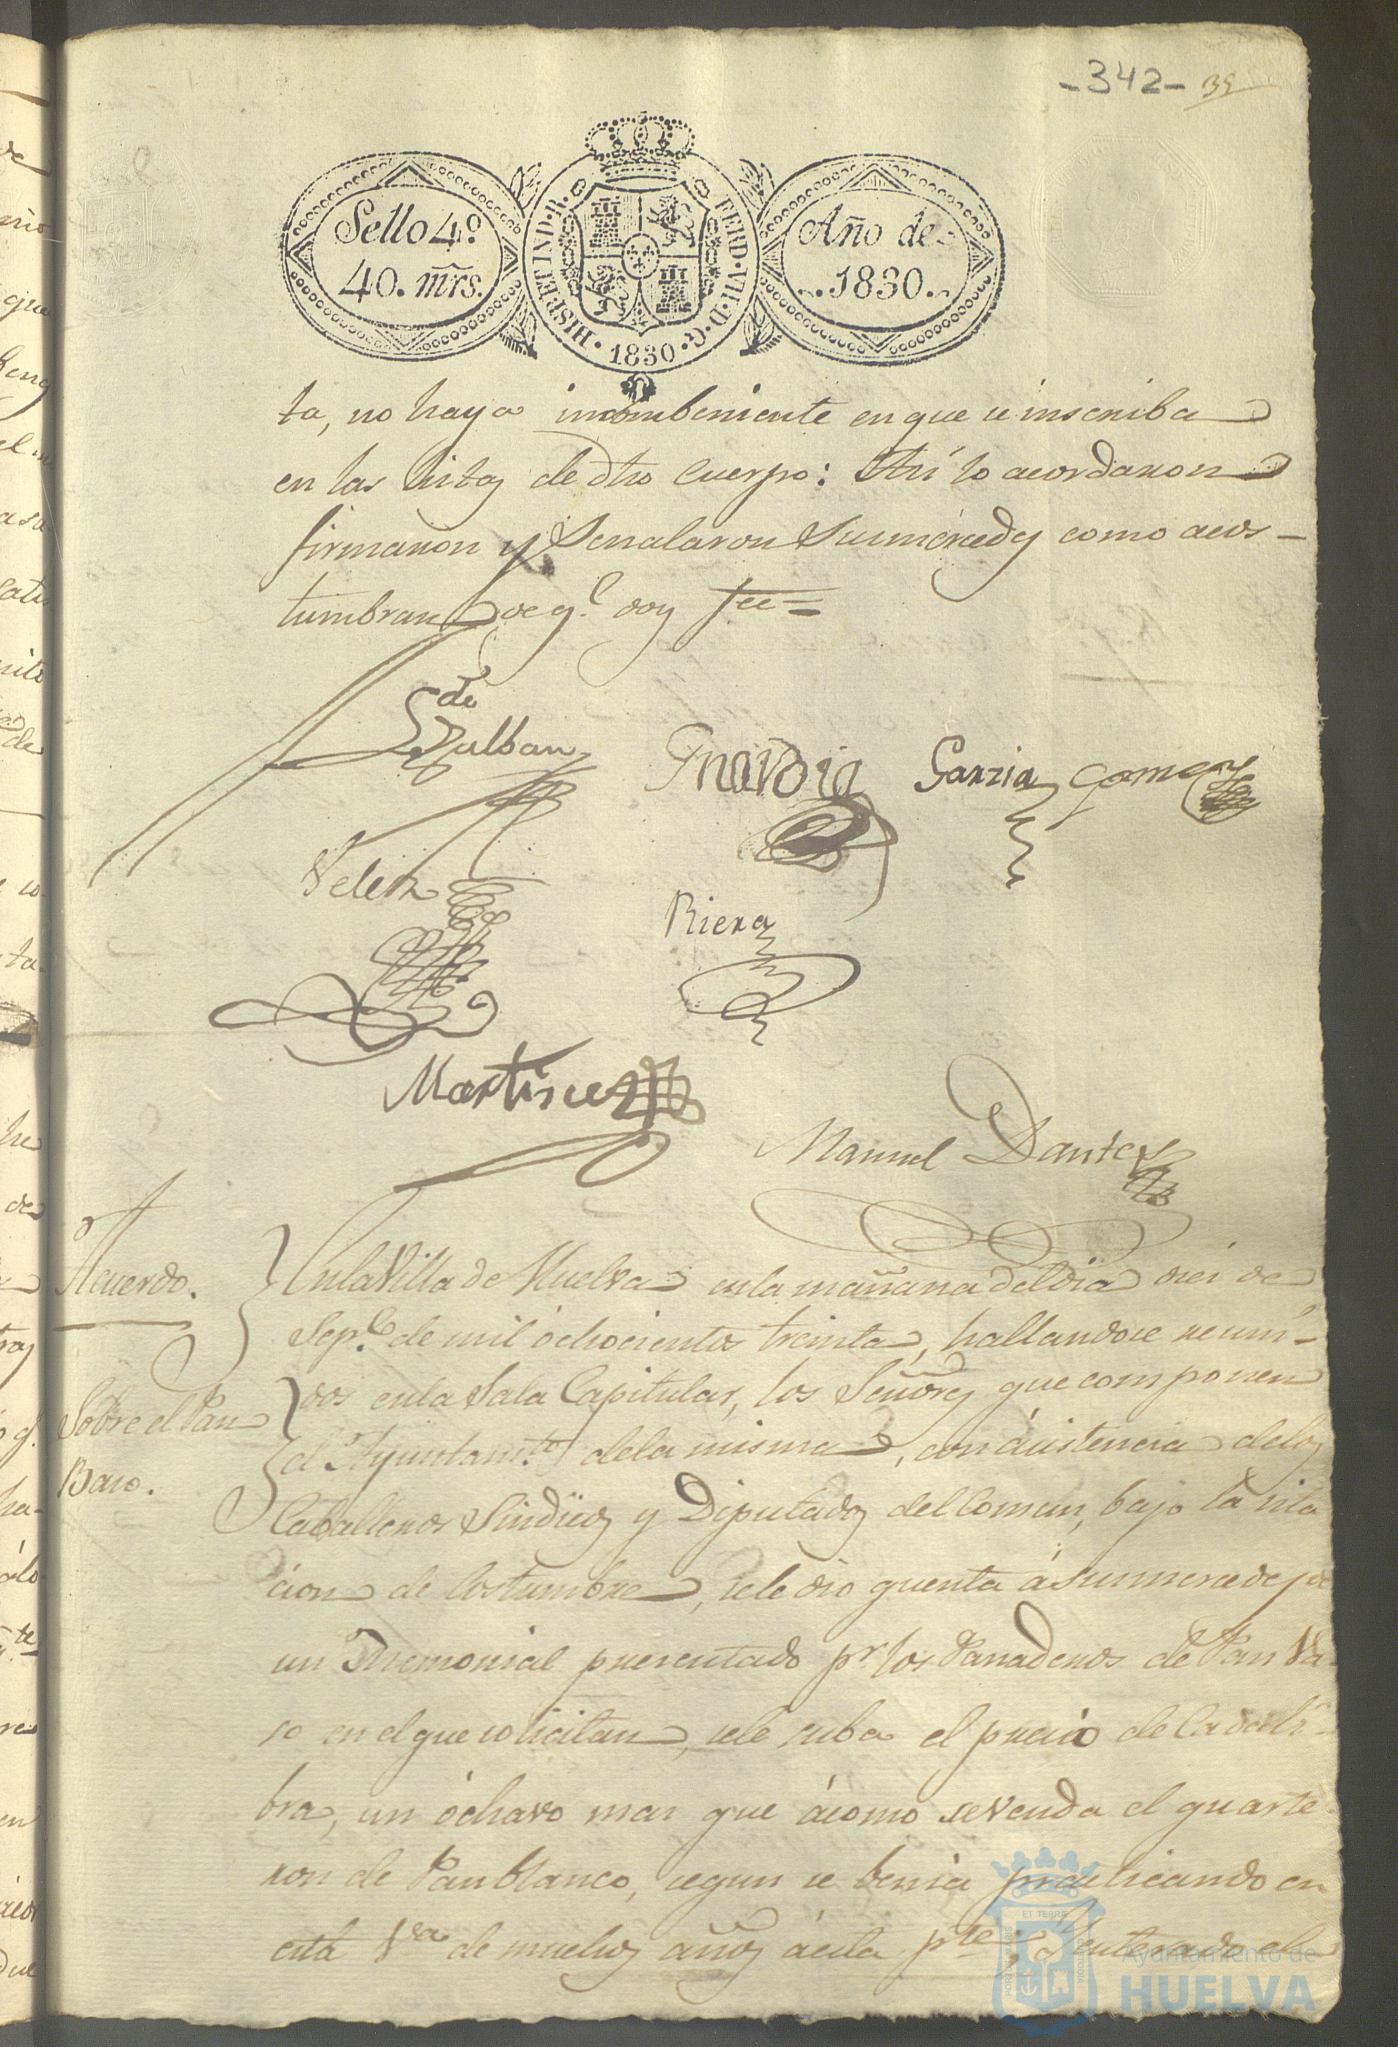 -342- 35
Sello 4º
40. mrs.
HISP. ET IND. R. FERD. VII. D. G. 1830
Año de
1830.
ta, no haya incombeniente en que se inscriba
en las listas de dho Cuerpo: Asi lo acordaron
firmaron y Señalaron Sus mercedes como acos-
tumbran de qe. doy fee=
de
Zalban
Garzia Gomez
Velez
Riera
Martinez
Manuel Dantes
Acuerdo.
Sobre el Pan
Baso.
En la Villa de Huelva en la mañana del dia seis de
Sepe. de mil ochocientos treinta, hallandose reuni-
dos en la Sala Capitular, los Señores que componen
el Ayuntamto. de la misma, con asistencia de los
Caballeros Sindicos y Diputados del Comun, bajo la cita
cion de Costumbre, se le dio quenta á sus mercedes de
un Memorial presentado pr. los Panaderos de Pan Ba
so en el que solicitan, se le suba el precio de Cada li-
bra, un óchavo mas que ácomo se venda el quarte
ron de Pan blanco, segun se benia practicando en
esta Va. de muchos años á esta pte; Y enterado el
Ayuntamiento de
HUELVA